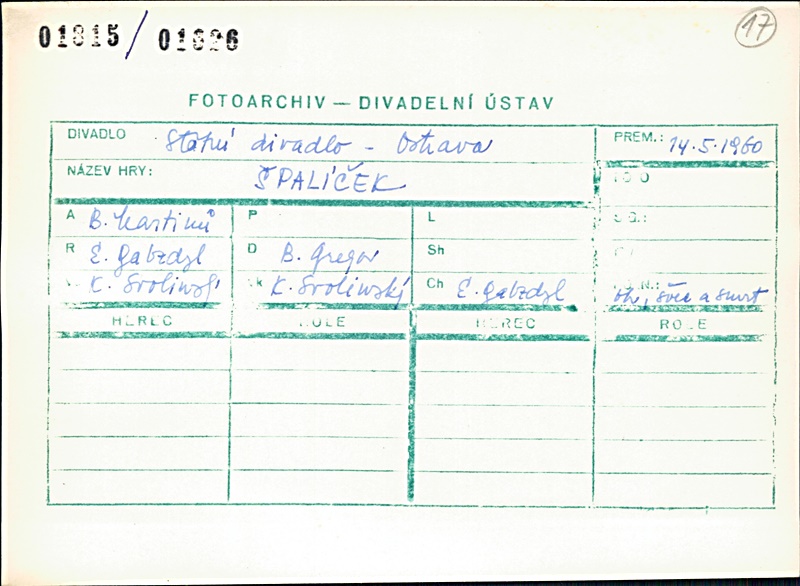 01815 / 01826
17
FOTOARCHIV — DIVADELNÍ ÚSTAV
DIVADLO Státní divadlo - Ostrava
PREM.: 14.5.1960
NÁZEV HRY: ŠPALÍČEK
A B. Martinů P L
R E. Gabzdyl D B. Gregor Sh
K. Svolinský K. Svolinský Ch E. Gabzdyl švec a smrt
HEREC ROLE HEREC ROLE